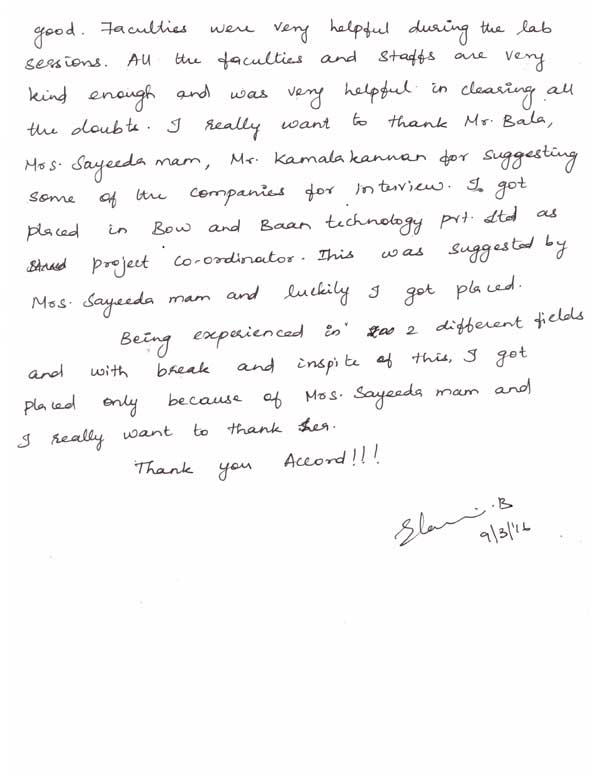 good. Faculties were very helpful during the lab
sessions. All the faculties and staffs are very
kind enough and was very helpful in clearing all
the doubts. I really want to thank Mr. Bala,
Mrs. Sayeeda mam, Mr. Kamalakannan for suggesting
some of the companies for interview. I got
placed in Bow and Baan technology pvt. Ltd as
project co-ordinator. This was suggested by
Mrs. Sayeeda mam and luckily I got placed.
Being experienced in 2 different fields
and with break and inspite of this, I got
placed only because of Mrs. Sayeeda mam and
I really want to thank her.
Thank you Accord!!!
.B
9/3/'16